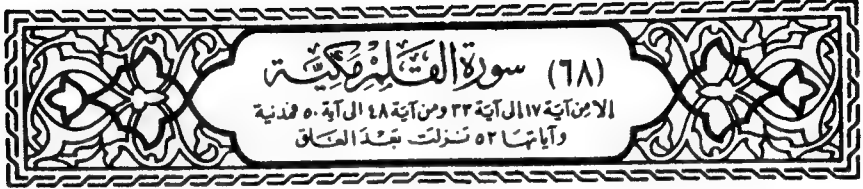 (٦٨) سورة القلم مكية
إلا من آية ١٧ إلى آية ٣٣ ومن آية ٤٨ إلى آية ٥٠ فمدنية
وآياتها ٥٢ نزلت بعد العلق